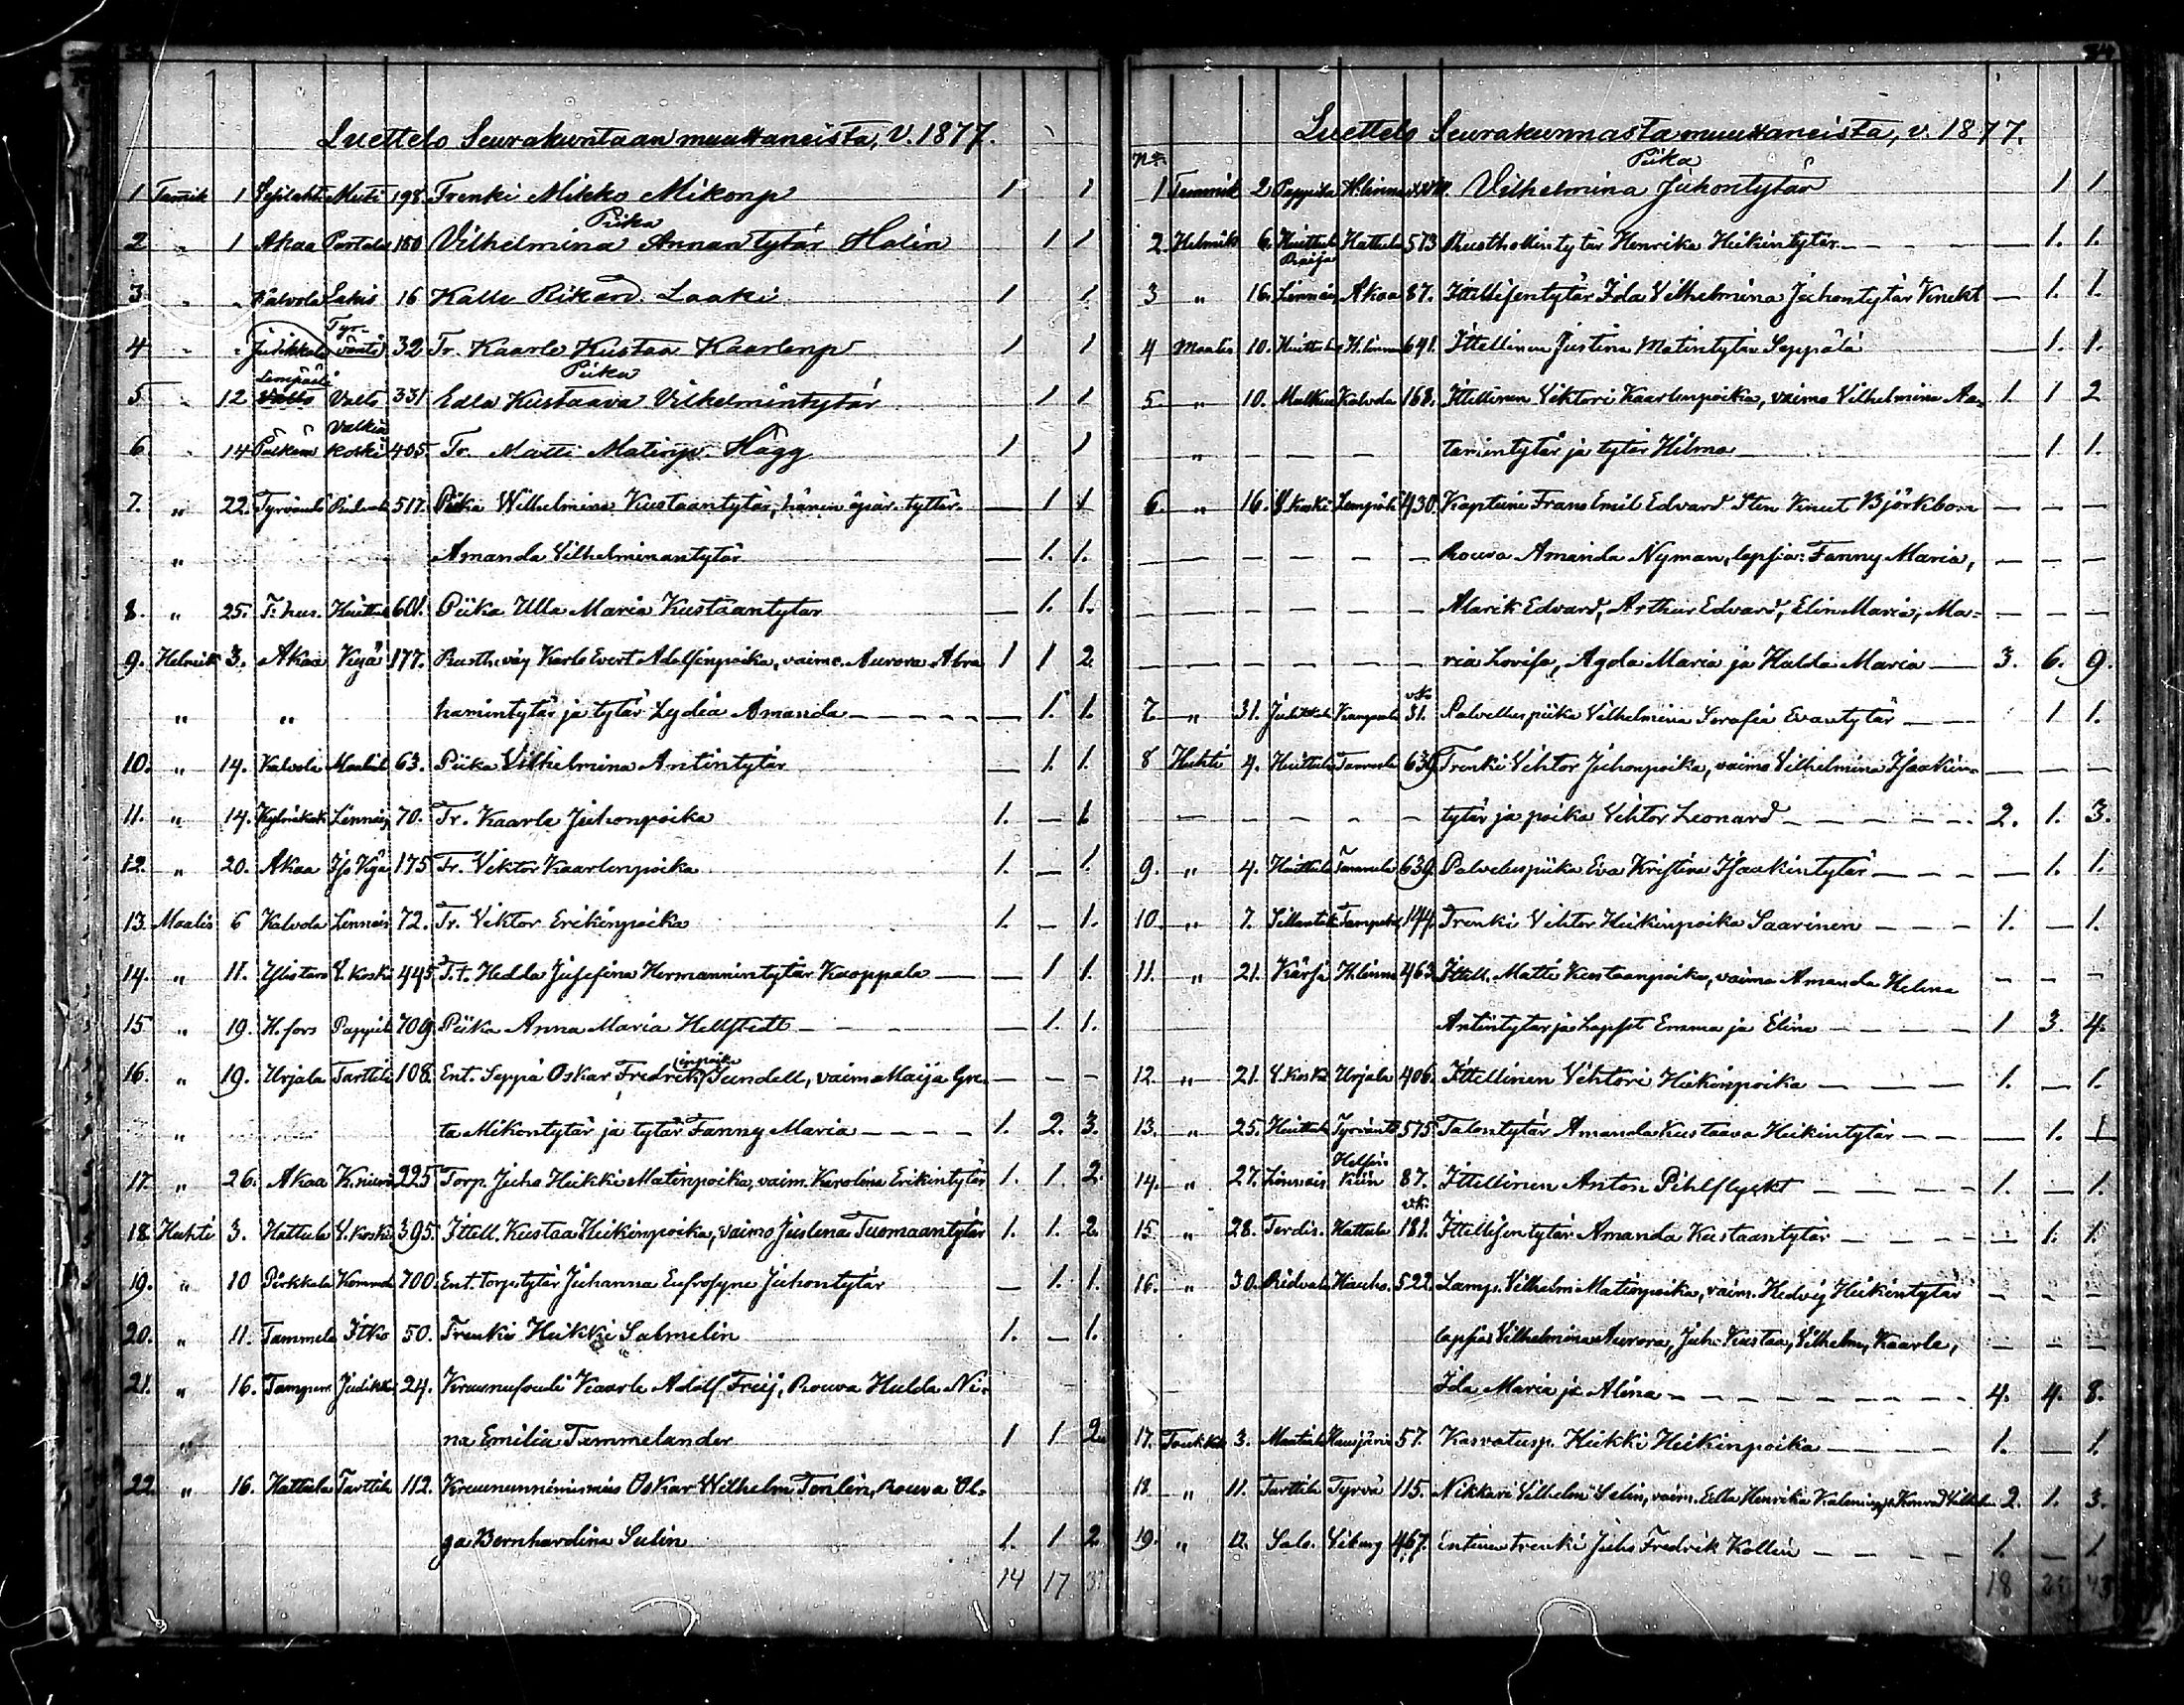 Luettelo Seurakuntaan muuttaneista, v. 1877.
1 Tamik 1 198. Trenki Mikko Mikonp 1 1
Piika
2 " 1 Akaa 150 Vilhelmina Annantytär Holin 1 1
3 " " Kalvola Lakis 16 Kalle Rikard Laaki 1 1
Tyr-
4 " " Judikkala väntö 32 Tr. Kaarle Kustaa Kaarlenp 1 1
Lempäälä Piika
5 " 12 Valto 331 Edla Kustaava Vilhelmintytär 1 1
Valkia
6 " 14 koski 405. Tr. Matti Matinp. Hägg 1 1
7. " 22. Tyrväntö Ridvala 517. Piika Wilhelmina Kustaantytär, hänen äpär. tyttär. — 1 1
" Amanda Vilhelminantytär — 1. 1.
8. " 25. T:hus. Huittula 601. Piika Ulla Maria Kustaantytar — 1. 1.
9. Helmik 3. Akaa 177. Rusth. väy Karle Evert Adolfinpoika, vaimo. Aurora Abra 1 1 2
" " hamintytär ja tytär Lydia Amanda — 1. 1.
10. " 14. Kalvola 63. Piika Vilhelmina Antintytär — 1. 1.
11. " 14. Linnais 70. Tr. Kaarle Juhonpoika 1. — 1.
12. " 20. Akaa 175 Tr. Viktor Kaarlenpoika 1. — 1.
13. Maalis 6 Kalvola Linnais 72. Tr. Viktor Erikinpoika 1. — 1.
14. " 11. Ylistaro V. koski 445. T.t. Hedda Josefina Hermannintytär Kaoppala — 1 1.
15 " 19. H.fors Pappila 709. Piika Anna Maria Hellstedt — 1. 1.
inpoika
16. " 19. Urjala Tarttila 108. Ent. Seppä Oskar Fredrik Sundell, vaimo Maija Gre- — — —
" ta Mikontytär ja tytär Fanny Maria 1. 2. 3.
17. " 26. Akaa K. niemi 225 Torp. Juho Heikki Matinpoika, vaim. Karolina Erikintytär 1. 1. 2.
18. Huhti 3. Hattula V. koski 395. Itell. Kustaa Heikinpoika, vaimo Juslina Tuomaantytär 1. 1. 2
19. " 10 Pirkkala 700. Ent. torp. tytär Johanna Eufrosyne Juhontytär — 1. 1.
20. " 11. Tammela Itko 50. Trenki Heikki Salmelin 1. — 1.
21. " 16. Tamper. Judikk 24. Kruunufouti Kaarle Adolf Freij, Rouva Hulda Ni-
" na Emilia Tammelander 1 1 2
22. " 16. Hattula Tarttila 112. Kruununnimismies Oskar Wilhelm Forslin, Rouva Ol-
ga Bernhardina Sulin 1. 1 2
14 17 31
Luettelo Seurakunnasta muuttaneista, v. 1877.
No. Piika
1 Tammik 2 Pappila H:linna Vilhelmina Juhontytär 1 1
2. Helmik 6. Huittula Hattula 573 Rusthollintytär Henrika Heikintytär — 1. 1.
3 " 16. Linnais Akaa 87. Itellisentytär Ida Vilhelmina Juhontytär Kinekt — 1. 1.
4 Maalis 10. Huittula H.linna 641. Itellinen Justina Matintytär Seppälä — 1. 1.
5. " 10. Kalvola 168. Itellinen Viktori Kaarlenpoika, vaimo Vilhelmina Aa- 1. 1 2
" — — — tamintytär ja tytär Hilma 1. 1.
6. " 16. V. koski Lempäl 430. Kapteini Frans Emil Edvard Sten Knut Björkbom — — —
— — — — — Rouva Amanda Nyman, lapsia: Fanny Maria, — — —
— — — — Alarik Edvard, Arthur Edvard, Elin Maria, Ma- — — —
— — — — — ria Lovisa, Agda Maria ja Hulda Maria — 3. 6. 9.
7. " 31. Judikkala Kangasala 31. Palvelluspiika Vilhelmina Serafia Evantytär 1 1.
8 Huhti 4. Huittula Tammela 639. Trenki Vihtor Juhonpoika, vaimo Vilhelmina Isaakin- — — —
— — — — — tytär ja poika Vihtor Leonard 2. 1. 3.
9. " 4. Huittula Tammela 639. Palveluspiika Eva Kristina Isaakintytär — 1. 1.
10 " 7. 144. Trenki Vihtor Heikinpoika Saarinen 1. — 1.
11. " 21. Kärjä H.linna 463. Itell. Matti Kustaanpoika, vaimo Amanda Helena — — —
Antintytär ja Lapset Emma ja Elina 1 3. 4.
12. " 21. V. koski Urjala 406. Itellinen Vihtori Heikinpoika 1. — 1.
13. " 25. Huittula Tyrväntö 575. Talontytär Amanda Kustaava Heikintytär — 1. 1
Helsin-
14. " 27. Linnais kiin 87. Itellinen Anton Pihlflyckt 1. — 1.
15 " 28. Hattula 181. Itellisentytär Amanda Kustaantytär — 1. 1.
16. " 30. Ridvala Hauho. 522. Lamp. Vilhelm Matinpoika, vaim. Hedvig Heikintytär — — —
lapsia Vilhelmina Aurora, Juh. Kustaa, Vilhelm, Kaarle, — — —
Ida Maria ja Alina 4. 4. 8.
17. Toukok 3. Hausjärvi 57. Kasvatusp. Heikki Heikinpoika 1. — 1.
18. " 11. Tarttila Tyrvä 115. Nikkari Vilhelm Selin, vaim. Edla Henrika 2. 1. 3.
19. " 12. Salo. Viborg 467. entinen trenki Juho Fredrik Kollin 1. — 1
18 25 43